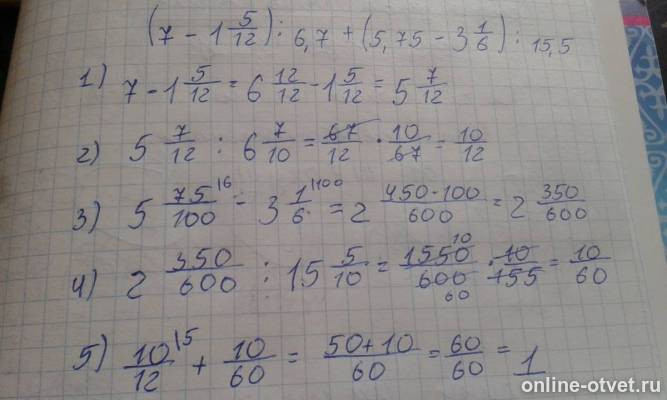 (7 - 1 5/12) : 6,7 + (5,75 - 3 1/6) : 15,5
1) 7 - 1 5/12 = 6 12/12 - 1 5/12 = 5 7/12
2) 5 7/12 : 6 7/10 = 67/12 · 10/67 = 10/12
3) 5 75/100 |6 - 3 1/6 |100 = 2 450-100/600 = 2 350/600
4) 2 350/600 : 15 5/10 = 1550 10/600 60 · 10/155 = 10/60
5) 10/12 |5 + 10/60 = 50+10/60 = 60/60 = 1
online-otvet.ru